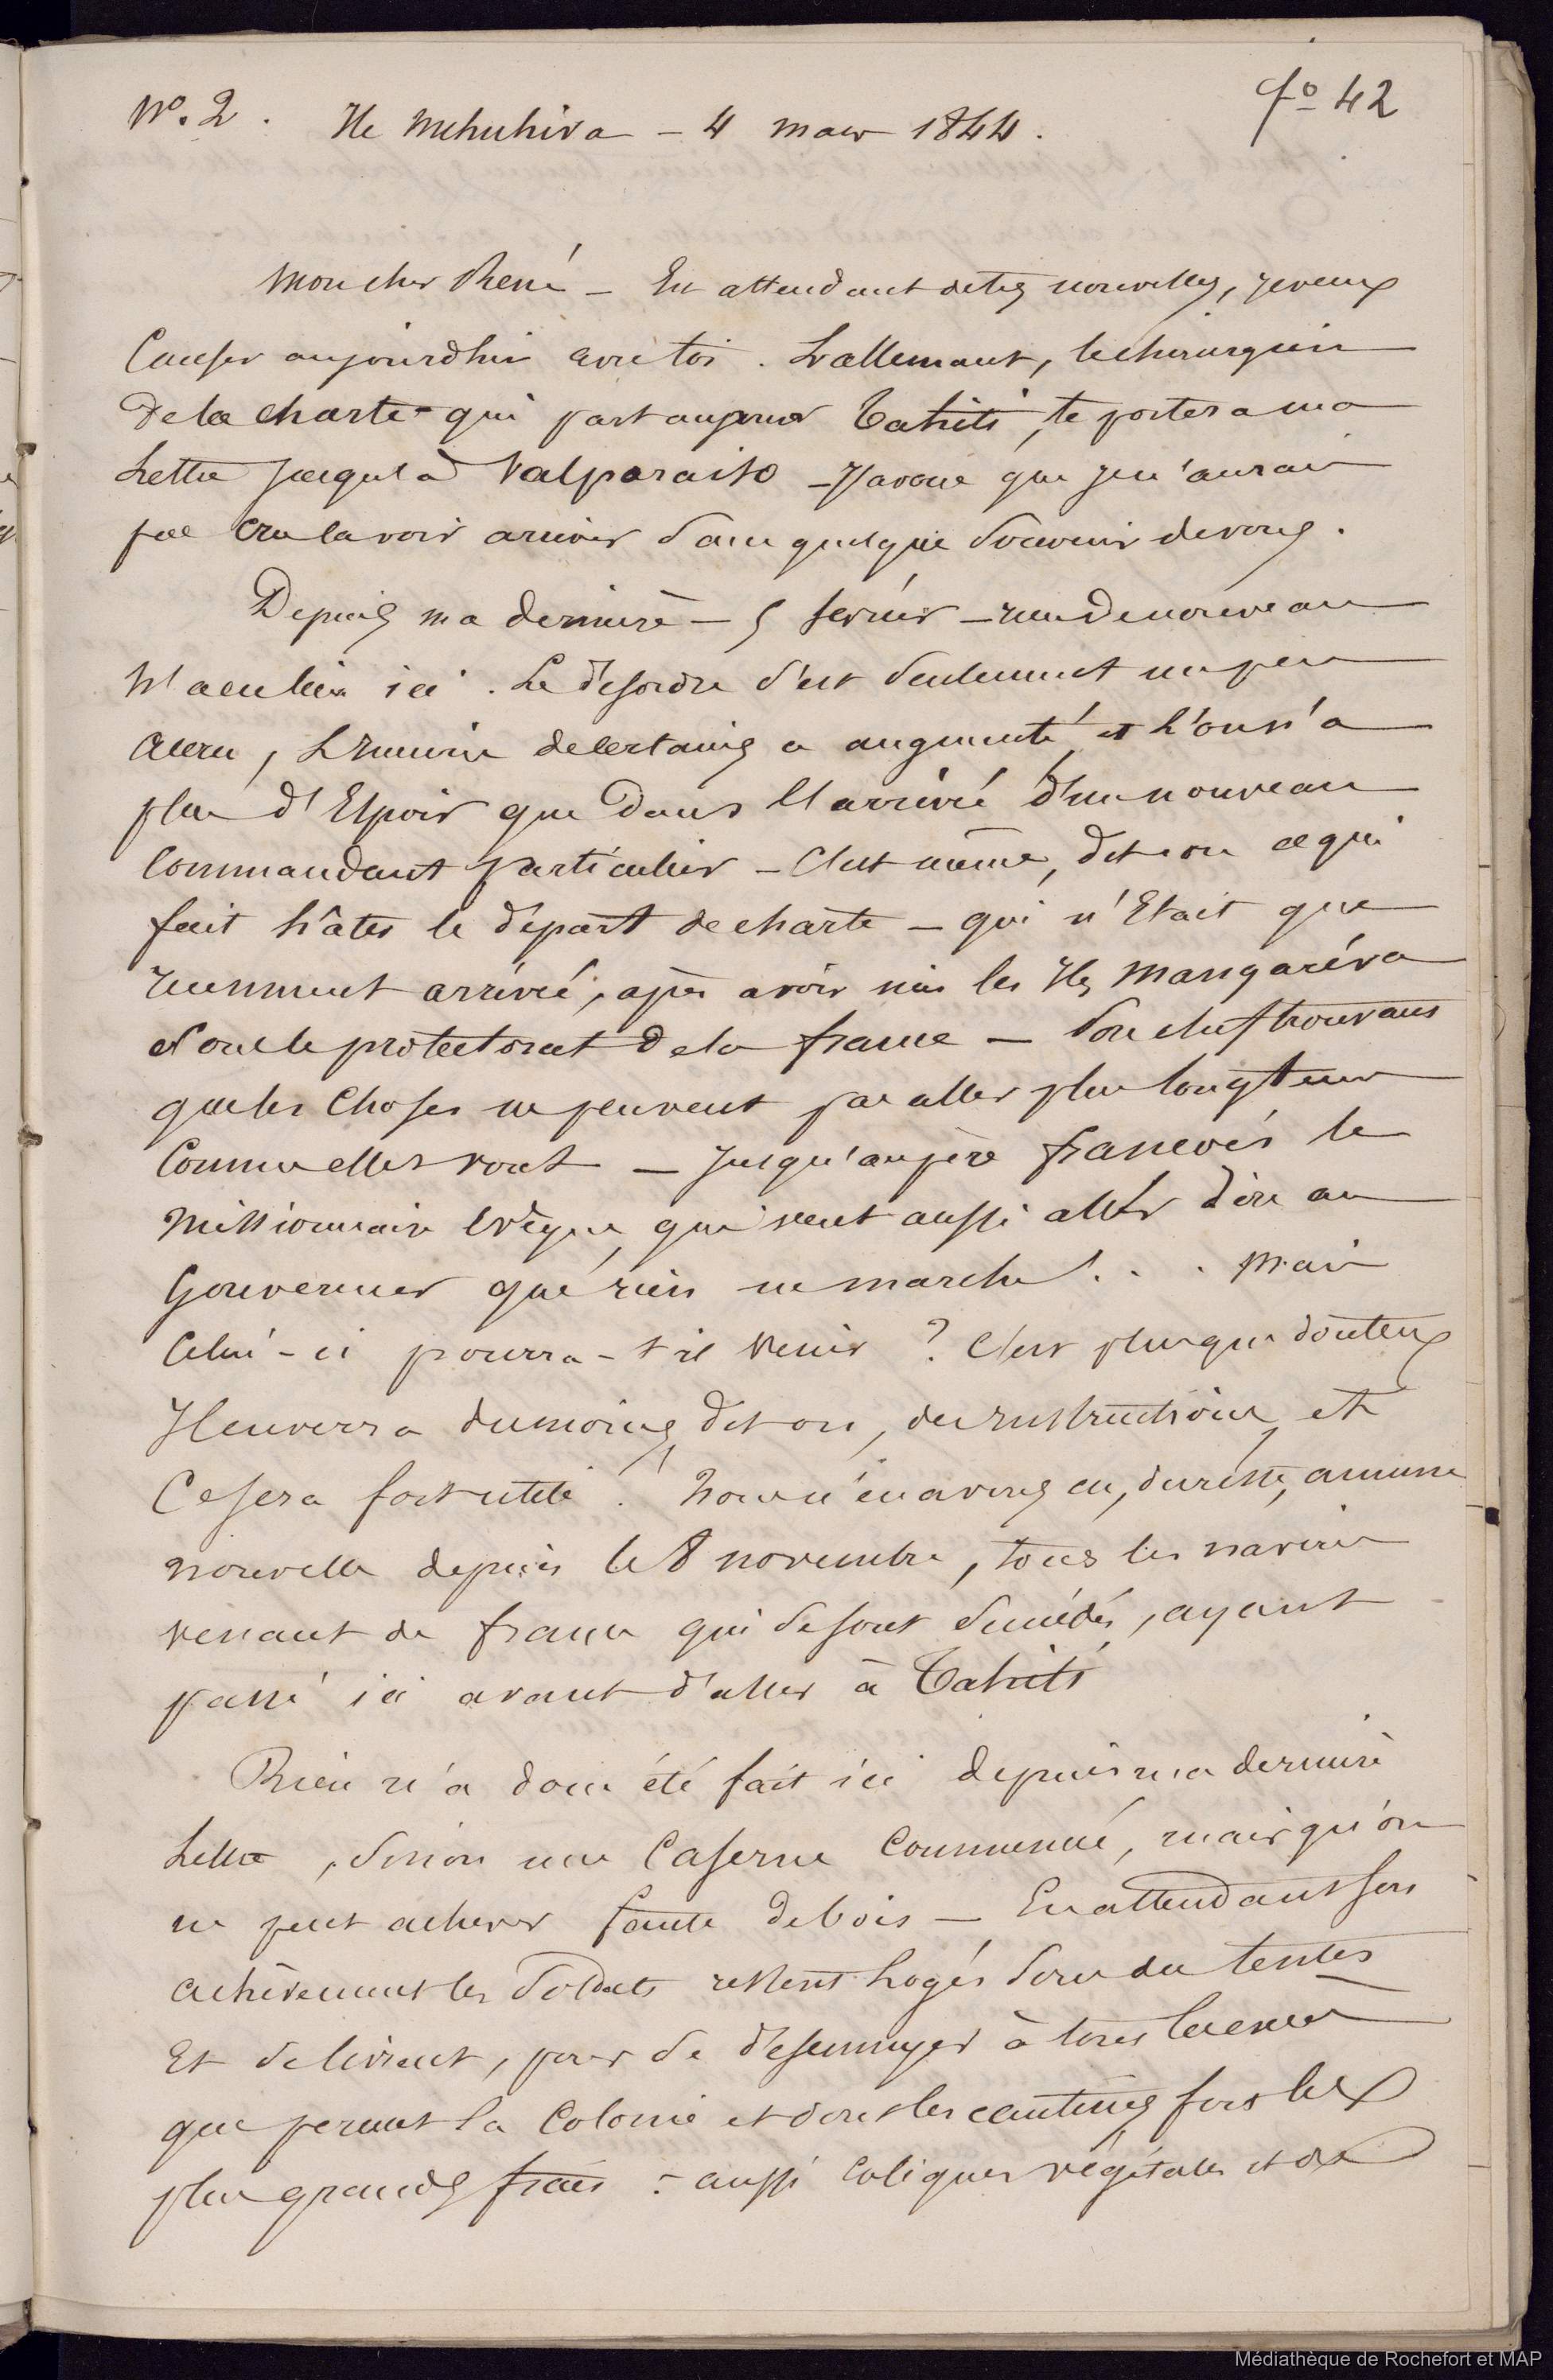 N°. 2. Ile Nuhuhiva – 4 mars 1844.
fo 42
Mon cher René – En attendant de tes nouvelles, je veux
Causer aujourdhui avec toi. Lallemant, le chirurgien
De la Charte qui part aujour Tahiti, te portera ma
Lettre jusqu'à Valparaiso – J'avoue que je n'aurais
pas cru la voir arriver sans quelque souvenir de vous.
Depuis ma dernière – 5 février – rien de nouveau
N'a eu lieu ici. Le désordre s'est seulement un peu
accru, L'ennui de certains a augmenté et l'on n'a
plus d'Espoir que Dans l'arrivée d'un nouveau
Commandant particulier – C'est même, dit-on ce qui
fait hâter le départ de Charte – qui n'Etait que
récemment arrivée, après avoir mis les Iles Mangaréva
sous le protectorat De la france – Son chef trouvant
que les Choses ne peuvent pas aller plus longtems
Comme elles vont – Jusqu'au père francois le
Missionnaire Evêque, qui veut aussi aller dire au
Gouverneur que rien ne marche! . . . Mais
Celui-ci pourra-t-il venir ? C'est plus que douteux
Il enverra du moins, dit on, des instructions, et
Ce sera fort utile. Nous n'en avons eu, du reste, aucune
nouvelle depuis le 8 novembre, tous les navires
venant de france qui se sont succédés, ayant
passé ici avant d'aller à Tahiti
Rien n'a donc été fait ici depuis ma dernière
Lettre, sinon une Caserne Commencée, mais qu'on
ne peut achever faute de bois – En attendant son
achèvement les Soldats restent Logés sous des tentes
Et se livrent, pour se désennuyer à tous les excès
que permet la Colonie et dont les cantines font les
plus grands frais : aussi coliques végétales et de
Médiathèque de Rochefort et MAP